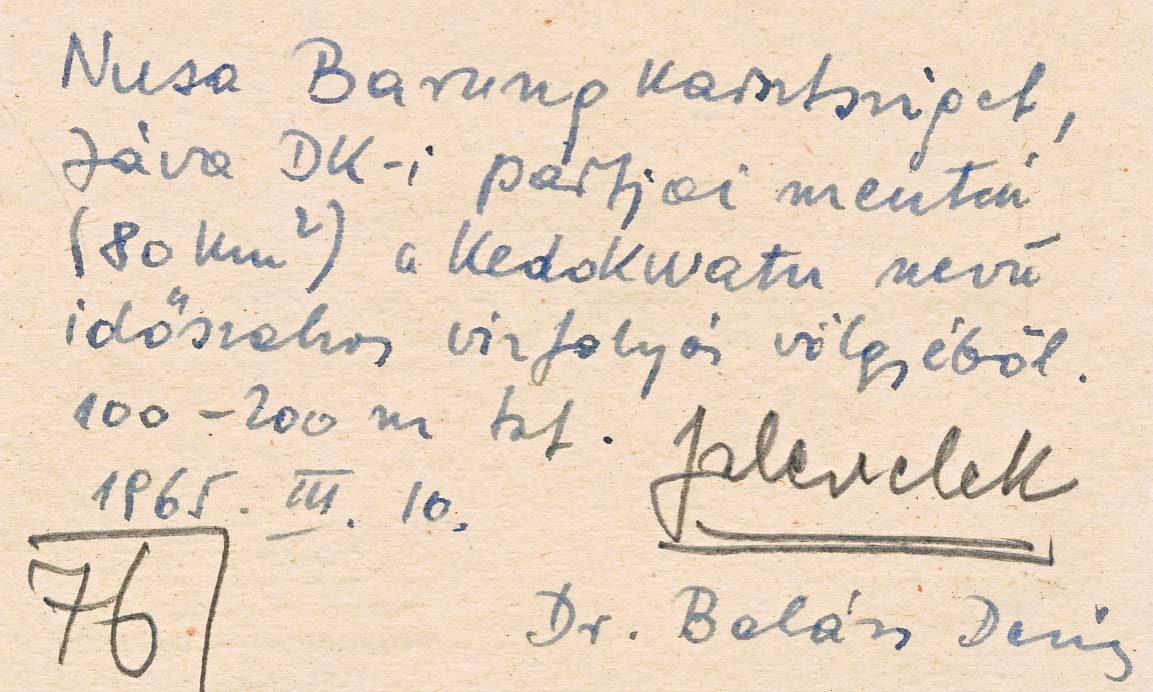 Nusa Barung karsztsziget,
Jáva DK-i partjai mentén
(80 km²) a Kedokwatu nevű
időszakos vízfolyás völgyéből.
100-200 m tszf.
levelek
1965. III. 10.
76
Dr. Balázs Dénes